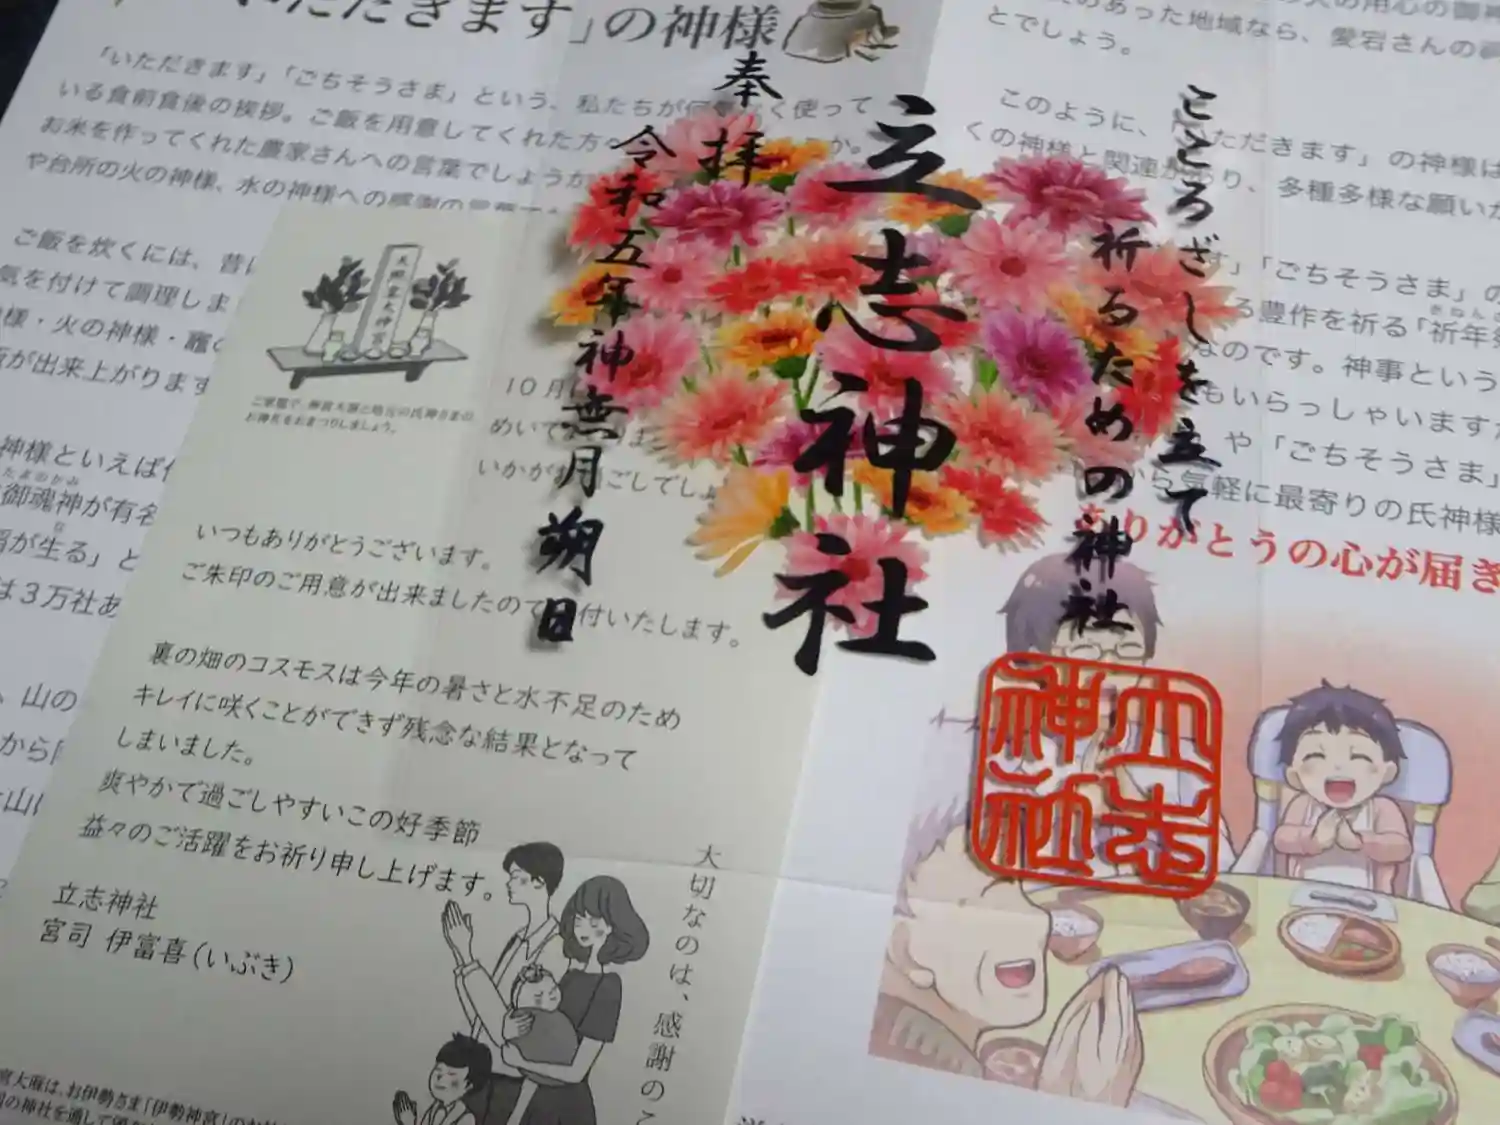 いただきます」の神様
「いただきます」「ごちそうさま」という、私たちが何気なく使って
いる食前食後の挨拶。ご飯を用意してくれた方へ
か。
お米を作ってくれた農家さんへの言葉でしょうか
や台所の火の神様、水の神様への感謝の
ご飯を炊くには、昔
気を付けて調理しま
様・火の神様・竈の
が出来上がります
神様といえば
たまのかみ
御魂神が有名
な
稲が生る」と
は3万社あ
、山の
から
山
とでしょう。
の火の用心の御神
のあった地域なら、愛宕さんの
このように、「いただきます」の神様は
くの神様と関連があり、多種多様な願いが
す」「ごちそうさま」の
る豊作を祈る「祈年祭
なのです。神事という
もいらっしゃいますが
や「ごちそうさま」
から気軽に最寄りの氏神様
ありがとうの心が届き
こころざしを立て
祈るための神社
立志神社
奉拝
令和五年神無月朔日
立志神社
天照皇大神宮
ご家庭で、神宮大麻と地元の氏神さまの
お神札をおまつりしましょう。
10月
めいて
いかがお過ごしでしょ
いつもありがとうございます。
ご朱印のご用意が出来ましたので 付いたします。
裏の畑のコスモスは今年の暑さと水不足のため
キレイに咲くことができず残念な結果となって
しまいました。
爽やかで過ごしやすいこの好季節
益々のご活躍をお祈り申し上げます。
立志神社
宮司 伊富喜(いぶき)
大切なのは、感謝のこ
宮大麻は、お伊勢さま「伊勢神宮」のお
の神社を通して